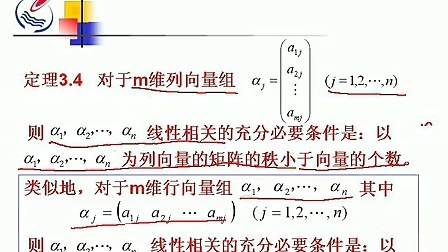 定理3.4 对于m维列向量组 α_j = (a_{1j} a_{2j} ⋮ a_{mj}) (j=1,2,⋯,n)
则 α₁, α₂,⋯, α_n 线性相关的充分必要条件是：以
α₁, α₂,⋯, α_n 为列向量的矩阵的秩小于向量的个数。
类似地，对于m维行向量组 α₁, α₂,⋯, α_n 其中
α_j = (a_{1j} a_{2j} ⋯ a_{mj}) (j=1,2,⋯,n)
则 α₁, α₂,⋯, α_n 线性相关的充分必要条件是：以